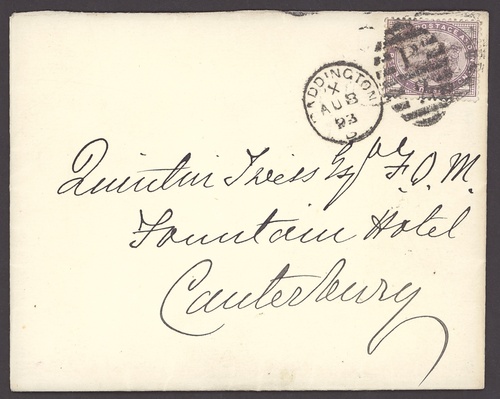 POSTAGE AND
PADDINGTON
X
AU 8
93
Quintin Twiss Esqre F.O.M.
Fountain Hotel
Canterbury